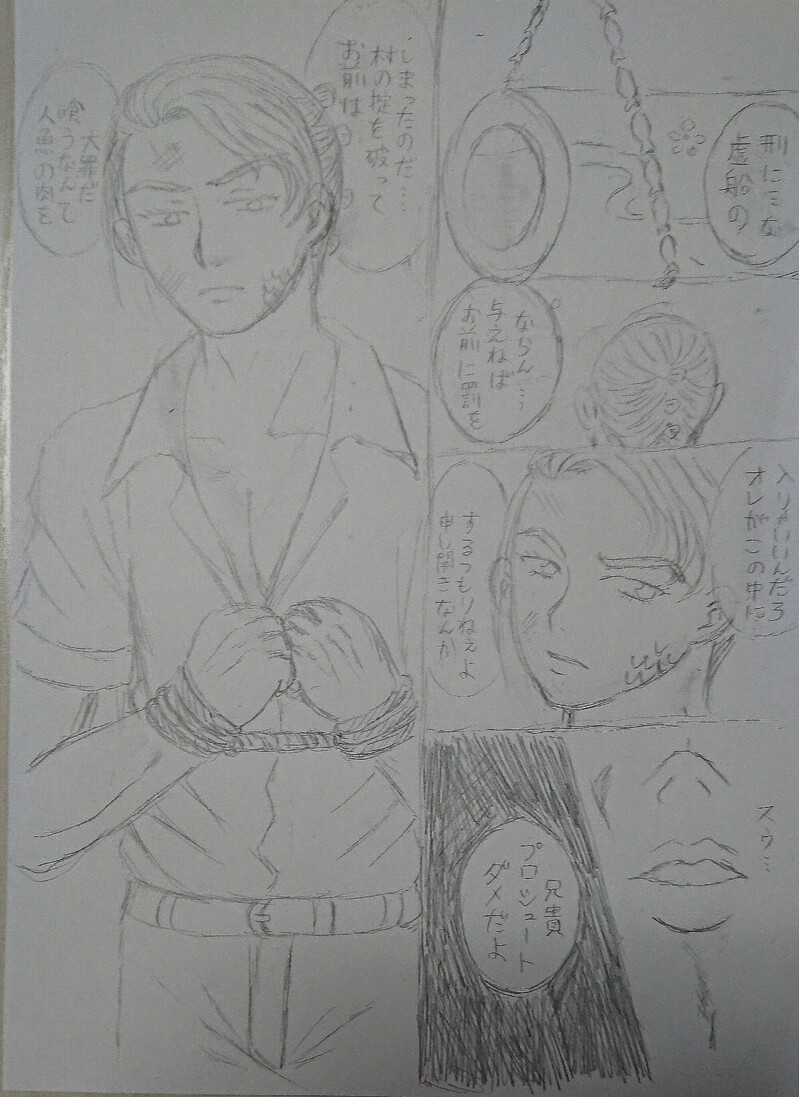 人魚の肉を
喰うなんて
大罪だ
お前は
村の掟を破って
しまったのだ…
虚船の
刑に
お前に罰を
与えねば
ならん…
申し開きなんか
するつもりねぇよ
オレがこの中に…
入りゃいいんだろ
ダメだよ
プロシュート
兄貴
スゥ…